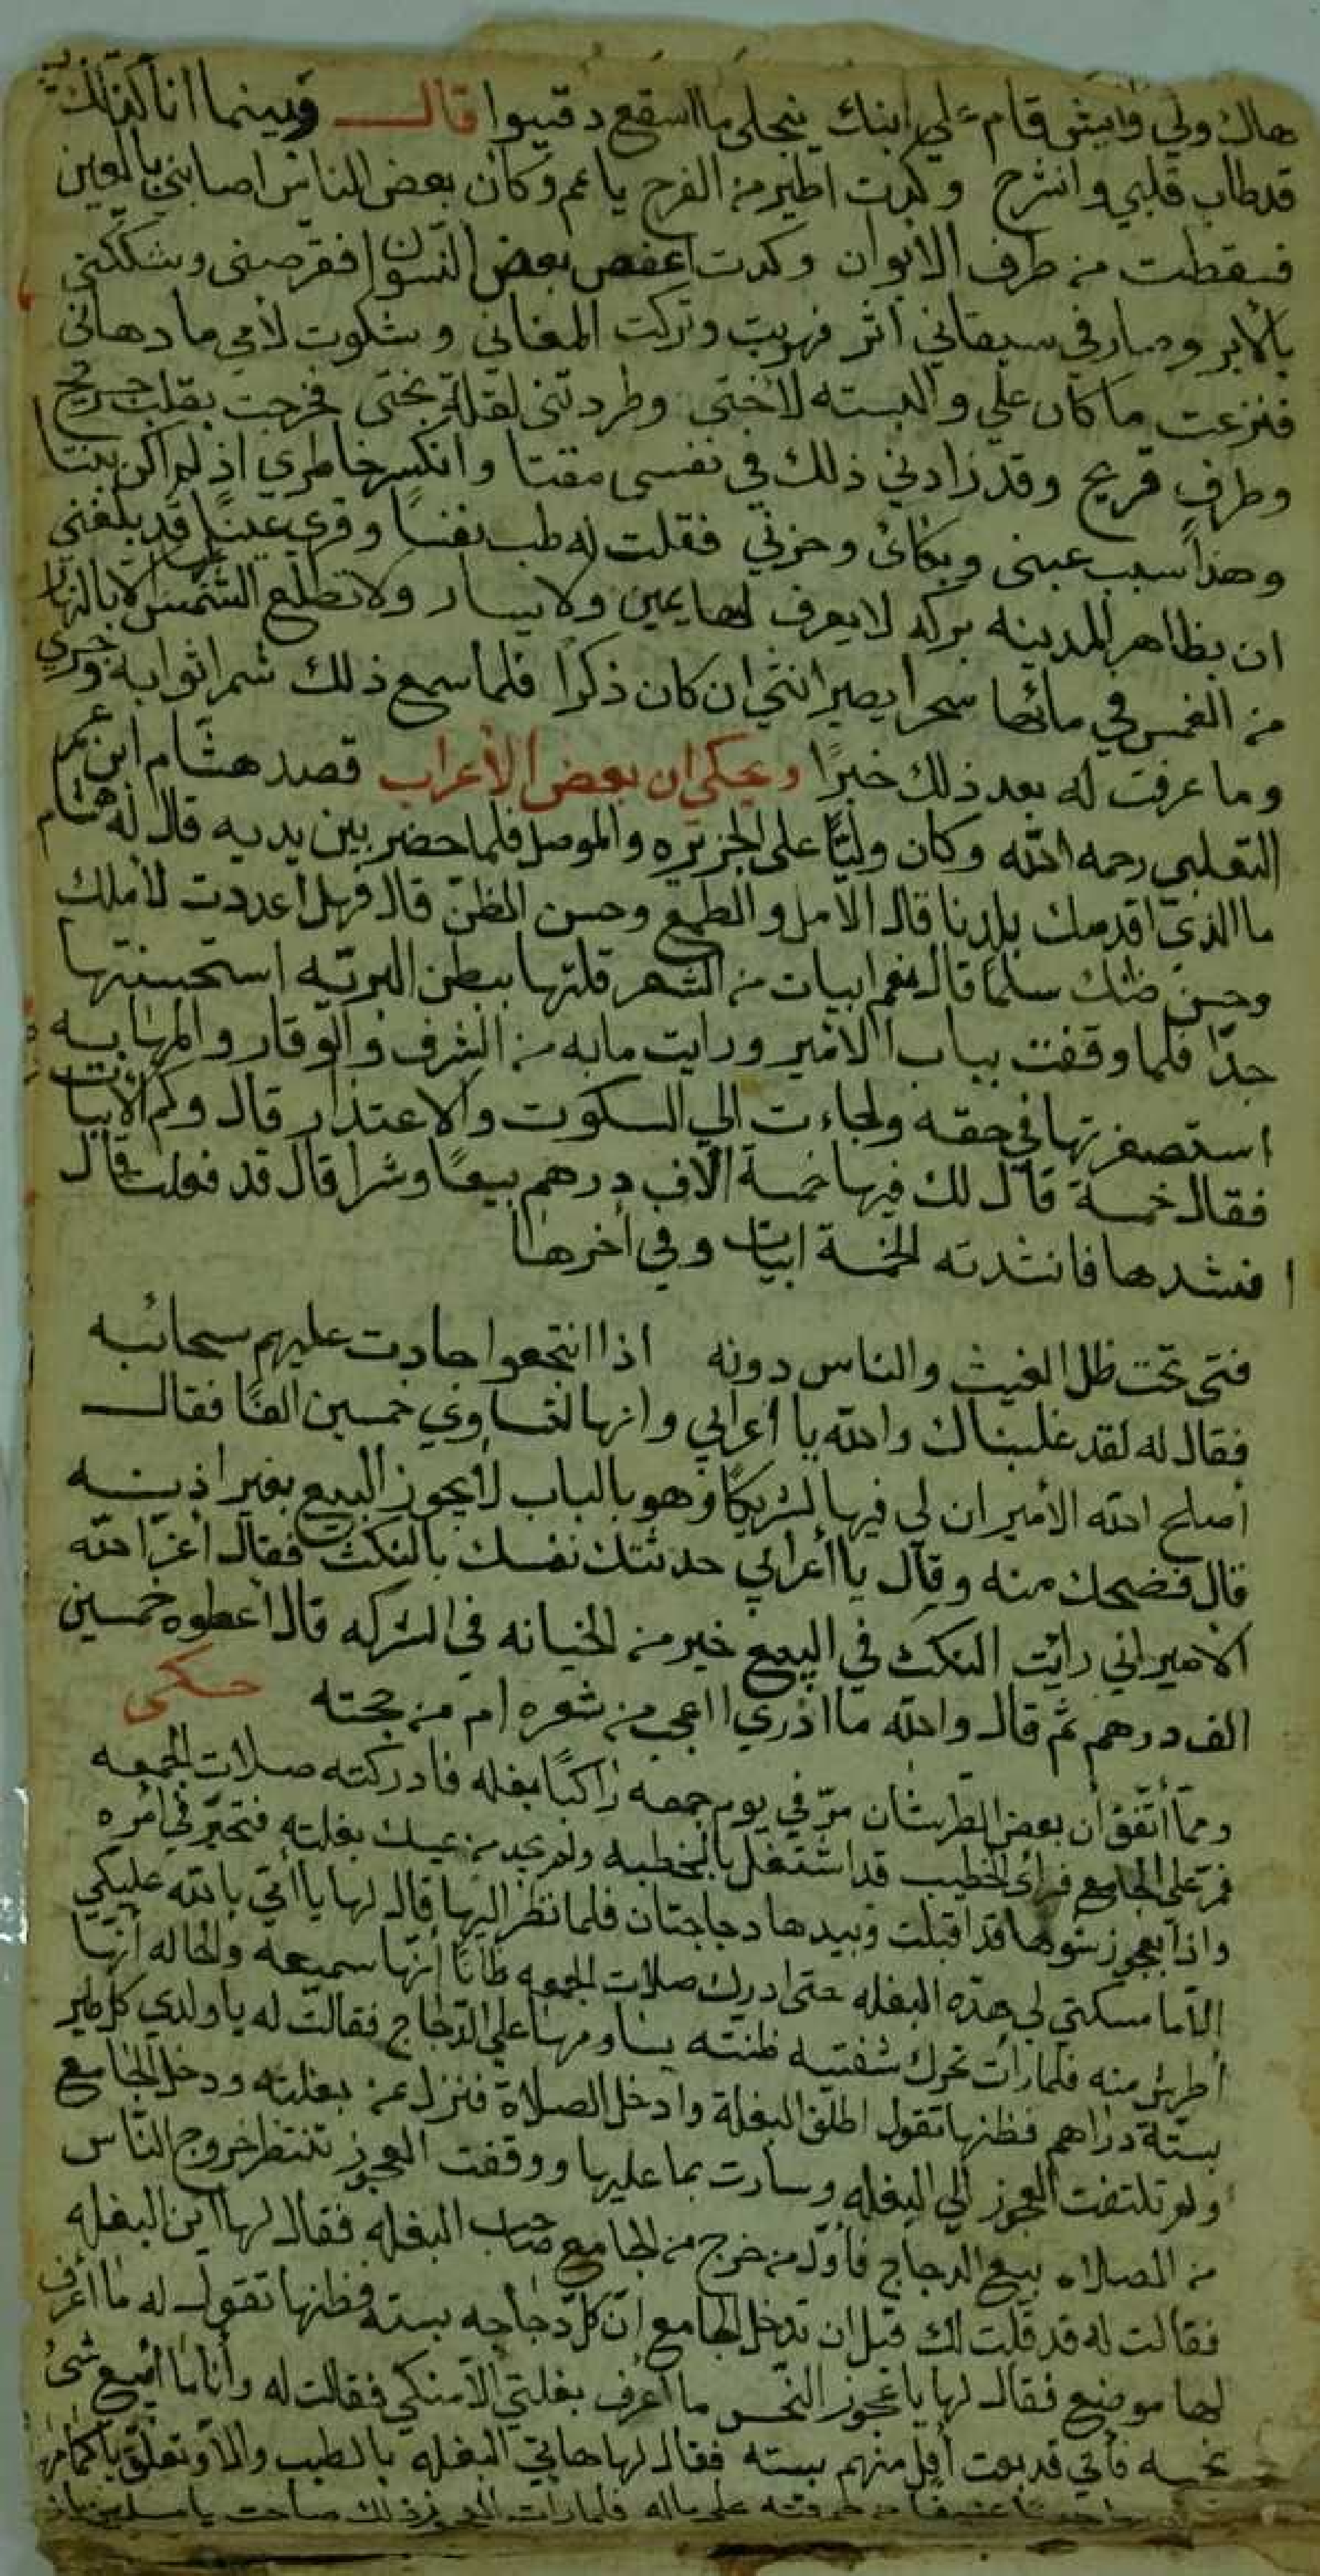 هاك ولي وايش قام علي ابنك ينجلي ما اسقع دقيوا قال وبينما انا كذلك
قد طاب قلبي وانشرح وكدت اطير من الفرح يا عم وكان بعض الناس اصابني بالعين
فسقطت من طرف الايوان وكدت اعفص بعض النسوان فقرصني وشككني
بالأبر وصار في سيقاني اثر فهربت وتركت المغاني وشكوت لأمي ما دهاني
فنزعت ما كان علي والبسته لأختي وطردتني لقلة بختي فخرجت بقلب جريح
وطرف قريح وقد زادني ذلك في نفسي مقتا وانكسر خاطري اذ لم اكن بنتا
وهذا سبب عبني وبكائ وحزني فقلت له طب نفسًا وقري عينًا قد بلغني
ان بظاهر المدينه بركه لا يعرف لها يمين ولا يسار ولا تطلع الشمس الا بالنهار
من انغمس في مائها سحرا يصير انثي ان كان ذكرًا فلما سمع ذلك شمر اثوابه وجري
وما عرفت له بعد ذلك خبرًا ويحكي ان بعض الأعراب قصد هشام ابن عمر
التغلبي رحمه الله وكان وليًا على الجزيره والموصل فلما حضر بين يديه قال له هشام
ما الذي اقدمك بلدنا قال الامل والطمع وحسن الظن قال فهل اعددت لأملك
وحسن ظنك سلمًا قال نعم ابيات من الشعر قلتها ببطن البريه استحسنتها
جدًا فلما وقفت بباب الامير ورايت ما به من الشرف والوقار والمهابه
استصغرتها في حقه ولجاءت الي السكوت والاعتذار قال وكم الأبيات
فقال خمسة قال لك فيها خمسة آلاف درهم بيعًا وشرا قال قد فعلت قال
انشدها فانشدته الخمسة ابيات وفي أخرها
فتى تحت ظل الغيث والناس دونه اذا انتجعوا جادت عليهم سحائبه
فقال له لقد غلبناك والله يا أعرابي وانها لتساوي خمسين الفًا فقال
أصلح الله الأمير ان لي فيها لشريكًا وهو بالباب لا يجوز البيع بغير اذنه
قال فضحك منه وقال يا أعرابي حدثتك نفسك بالنكث فقال أعز الله
الأمير اني رايت النكث في البيع خير من الخيانه في الشركه قال أعطوه خمسين
الف درهم ثم قال والله ما ادري ااعجب من شعره ام من حجته حكى
ومما أتفق أن بعض الطرشان مرّ في يوم جمعه راكبًا بغله فادركته صلات الجمعه
فمر على الجامع فرائ الخطيب قد اشتغل بالخطبه ولم يجد من يمسك بغلته فتحير في امره
واذا بعجوز شوها قد اقبلت وبيدها دجاجتان فلما نظر اليها قال لها يا أمي بالله عليكي
الاما مسكتي لي هذه البغله حتى ادرك صلات الجمعه ظانًا أنها سميعه والحاله أنها
أطرش منه فلما رأت تحرك شفتيه ظنته يساومها على الدجاج فقالت له يا ولدي كل طير
بستة دراهم فظنها تقول اطلق البغلة وادخل الصلاة فنزل عن بغلته ودخل الجامع
ولم تلتفت العجوز الي البغله وسارت بما عليها ووقفت العجوز تنتظر خروج الناس
من الصلاه بيع الدجاج فأول من خرج من الجامع صاحب البغله فقال لها اين البغله
فقالت له قد قلت لك قبل ان تدخل الجامع ان كل دجاجه بسته فظنها تقول له ما أعرف
لها موضع فقال لها يا عجوز النحس ما أعرف بغلتي الا منكي فقالت له وأنا ما أبيع شئ
بخمسه فأني قد بعت أقل منهم بسته فقال لها هاتي البغله بالطيب والا وتعلق باكمامها
على باله فلما رأت العجوز ذلك صاحت يا مسلمين